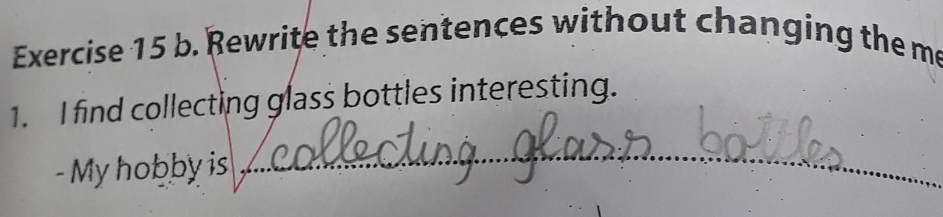 Exercise 15 b. Rewrite the sentences without changing the me
1. I find collecting glass bottles interesting.
- My hobby is collecting glass bottles